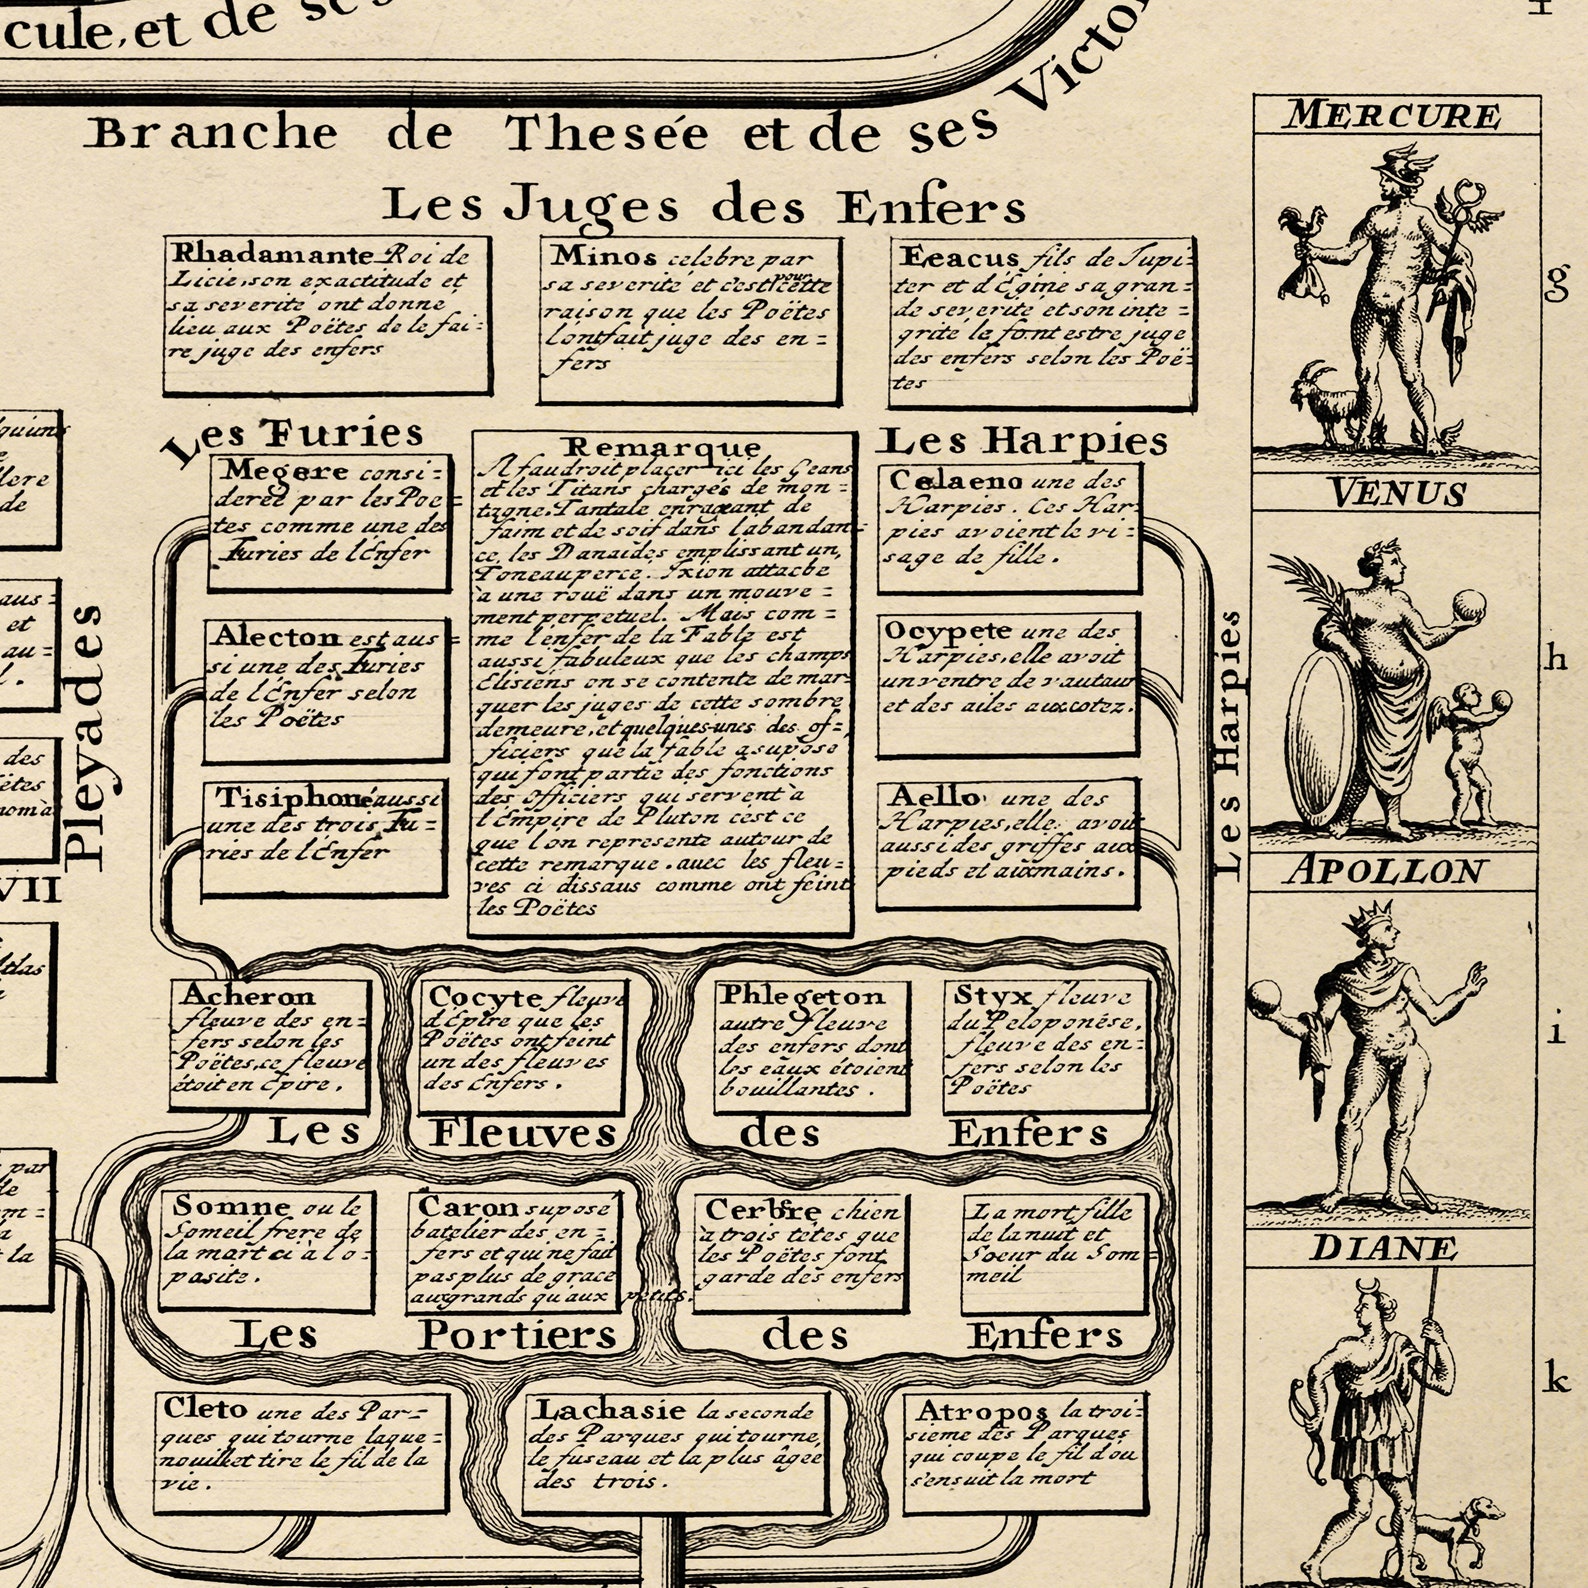 cule, et de ses
Branche de Thesée et de ses Victoi
Les Juges des Enfers
Rhadamante Roi de
Licie, son exactitude et
sa severité ont donne
lieu aux Poëtes de le fai=
re juge des enfers
Minos celebre par
sa severité et c'est pour cette
raison que les Poëtes
l'ont fait juge des en=
fers
Eeacus fils de Jupi=
ter et d'Égine sa gran=
de severité et son inte=
grité le font estre juge
des enfers selon les Poë=
tes
Les Furies
Megere consi=
derée par les Poe=
tes comme une des
Furies de l'Enfer
Alecton est aus=
si une des Furies
de l'Enfer selon
les Poëtes
Tisiphone aussi
une des trois Fu=
ries de l'Enfer
Remarque
Il faudroit placer ici les Geans
et les Titans chargés de mon=
tagne, Tantale enrageant de
faim et de soif dans l'abandan=
ce, les Danaïdes emplissant un,
Toneau percé. Ixion attache
a une rouë dans un mouve=
ment perpetuel. Mais com=
me l'enfer de la Fable est
aussi fabuleux que les champs
Elisiens on se contente de mar=
quer les juges de cette sombre
demeure, et quelques-uns des of=
ficiers que la fable a supose
qui font partie des fonctions
des Officiers qui servent a
l'Empire de Pluton c'est ce
que l'on represente autour de
cette remarque. avec les fleu=
ves ci dissaus comme ont feint
les Poëtes
Les Harpies
Celaeno une des
Harpies. Ces Har=
pies avoient le vi=
sage de fille.
Ocypete une des
Harpies, elle avoit
un ventre de vautaur
et des ailes aux cotez.
Aello une des
Harpies, elle avoit
aussi des griffes aux
pieds et aux mains.
Les Harpies
Pleyades
VII
Acheron
fleuve des en=
fers selon les
Poëtes, ce fleuve
étoit en Epire.
Cocyte fleuve
d'Epire que les
Poëtes ont feint
un des fleuves
des Enfers.
Phlegeton
autre fleuve
des enfers dont
les eaux étoient
bouillantes.
Styx fleuve
du Peloponése,
fleuve des en=
fers selon les
Poëtes
Les Fleuves des Enfers
Somne ou le
Someil frere de
la mort ci a l'o=
posite.
Caron suposé
batelier des en=
fers et qui ne fait
pas plus de grace
aux grands qu'aux petits.
Cerbere chien
à trois tétes que
les Poëtes font
garde des enfers
La mort fille
de la nuit et
Soeur du Som=
meil
Les Portiers des Enfers
Cleto une des Par=
ques qui tourne la que=
nouille et tire le fil de la
vie.
Lachasie la seconde
des Parques qui tourne,
le fuseau et la plus âgée
des trois.
Atropos la troi=
sieme des Parques
qui coupe le fil d'ou
s'ensuit la mort
MERCURE
g
VENUS
h
APOLLON
i
DIANE
k